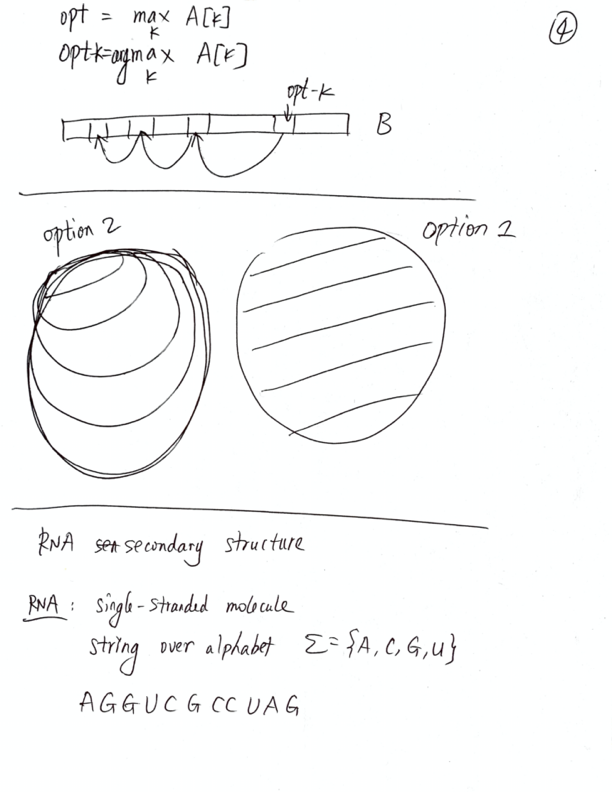 opt = max A[k]
k
④
opt-k=argmax A[k]
k
opt-k
B
option 2
option 1
RNA secondary structure
RNA: single-stranded molecule
string over alphabet Σ={A,C,G,U}
AGGUCGCCUAG